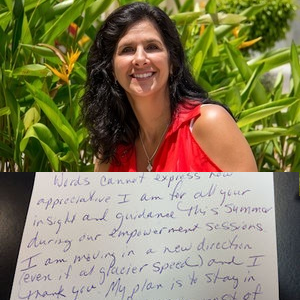 Words cannot express how
appreciative I am for all your
insight and guidance this summer
during our empowerment sessions.
I am moving in a new direction
(even if at glacier speed) and I
thank you. My plan is to stay in
of